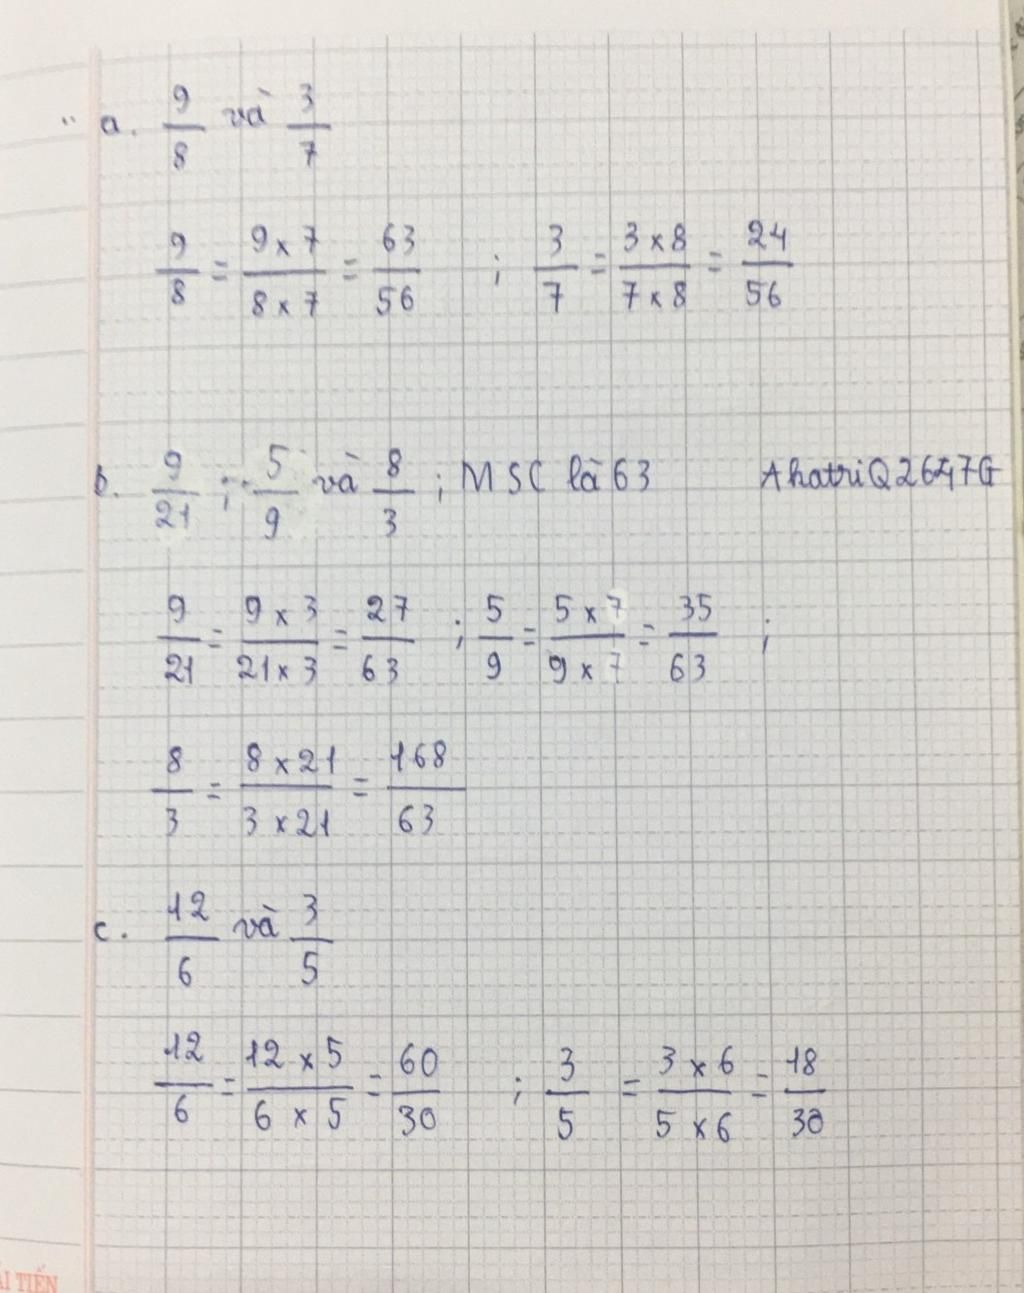 a. 9/8 và 3/7
9/8 = 9 x 7/8 x 7 = 63/56 ; 3/7 = 3 x 8/7 x 8 = 24/56
b. 9/21 ; 5/9 và 8/3 ; MSC là 63 AhatriQ2647G
9/21 = 9 x 3/21 x 3 = 27/63 ; 5/9 = 5 x 7/9 x 7 = 35/63 ;
8/3 = 8 x 21/3 x 21 = 168/63
c. 12/6 và 3/5
12/6 = 12 x 5/6 x 5 = 60/30 ; 3/5 = 3 x 6/5 x 6 = 18/30
TIẾN